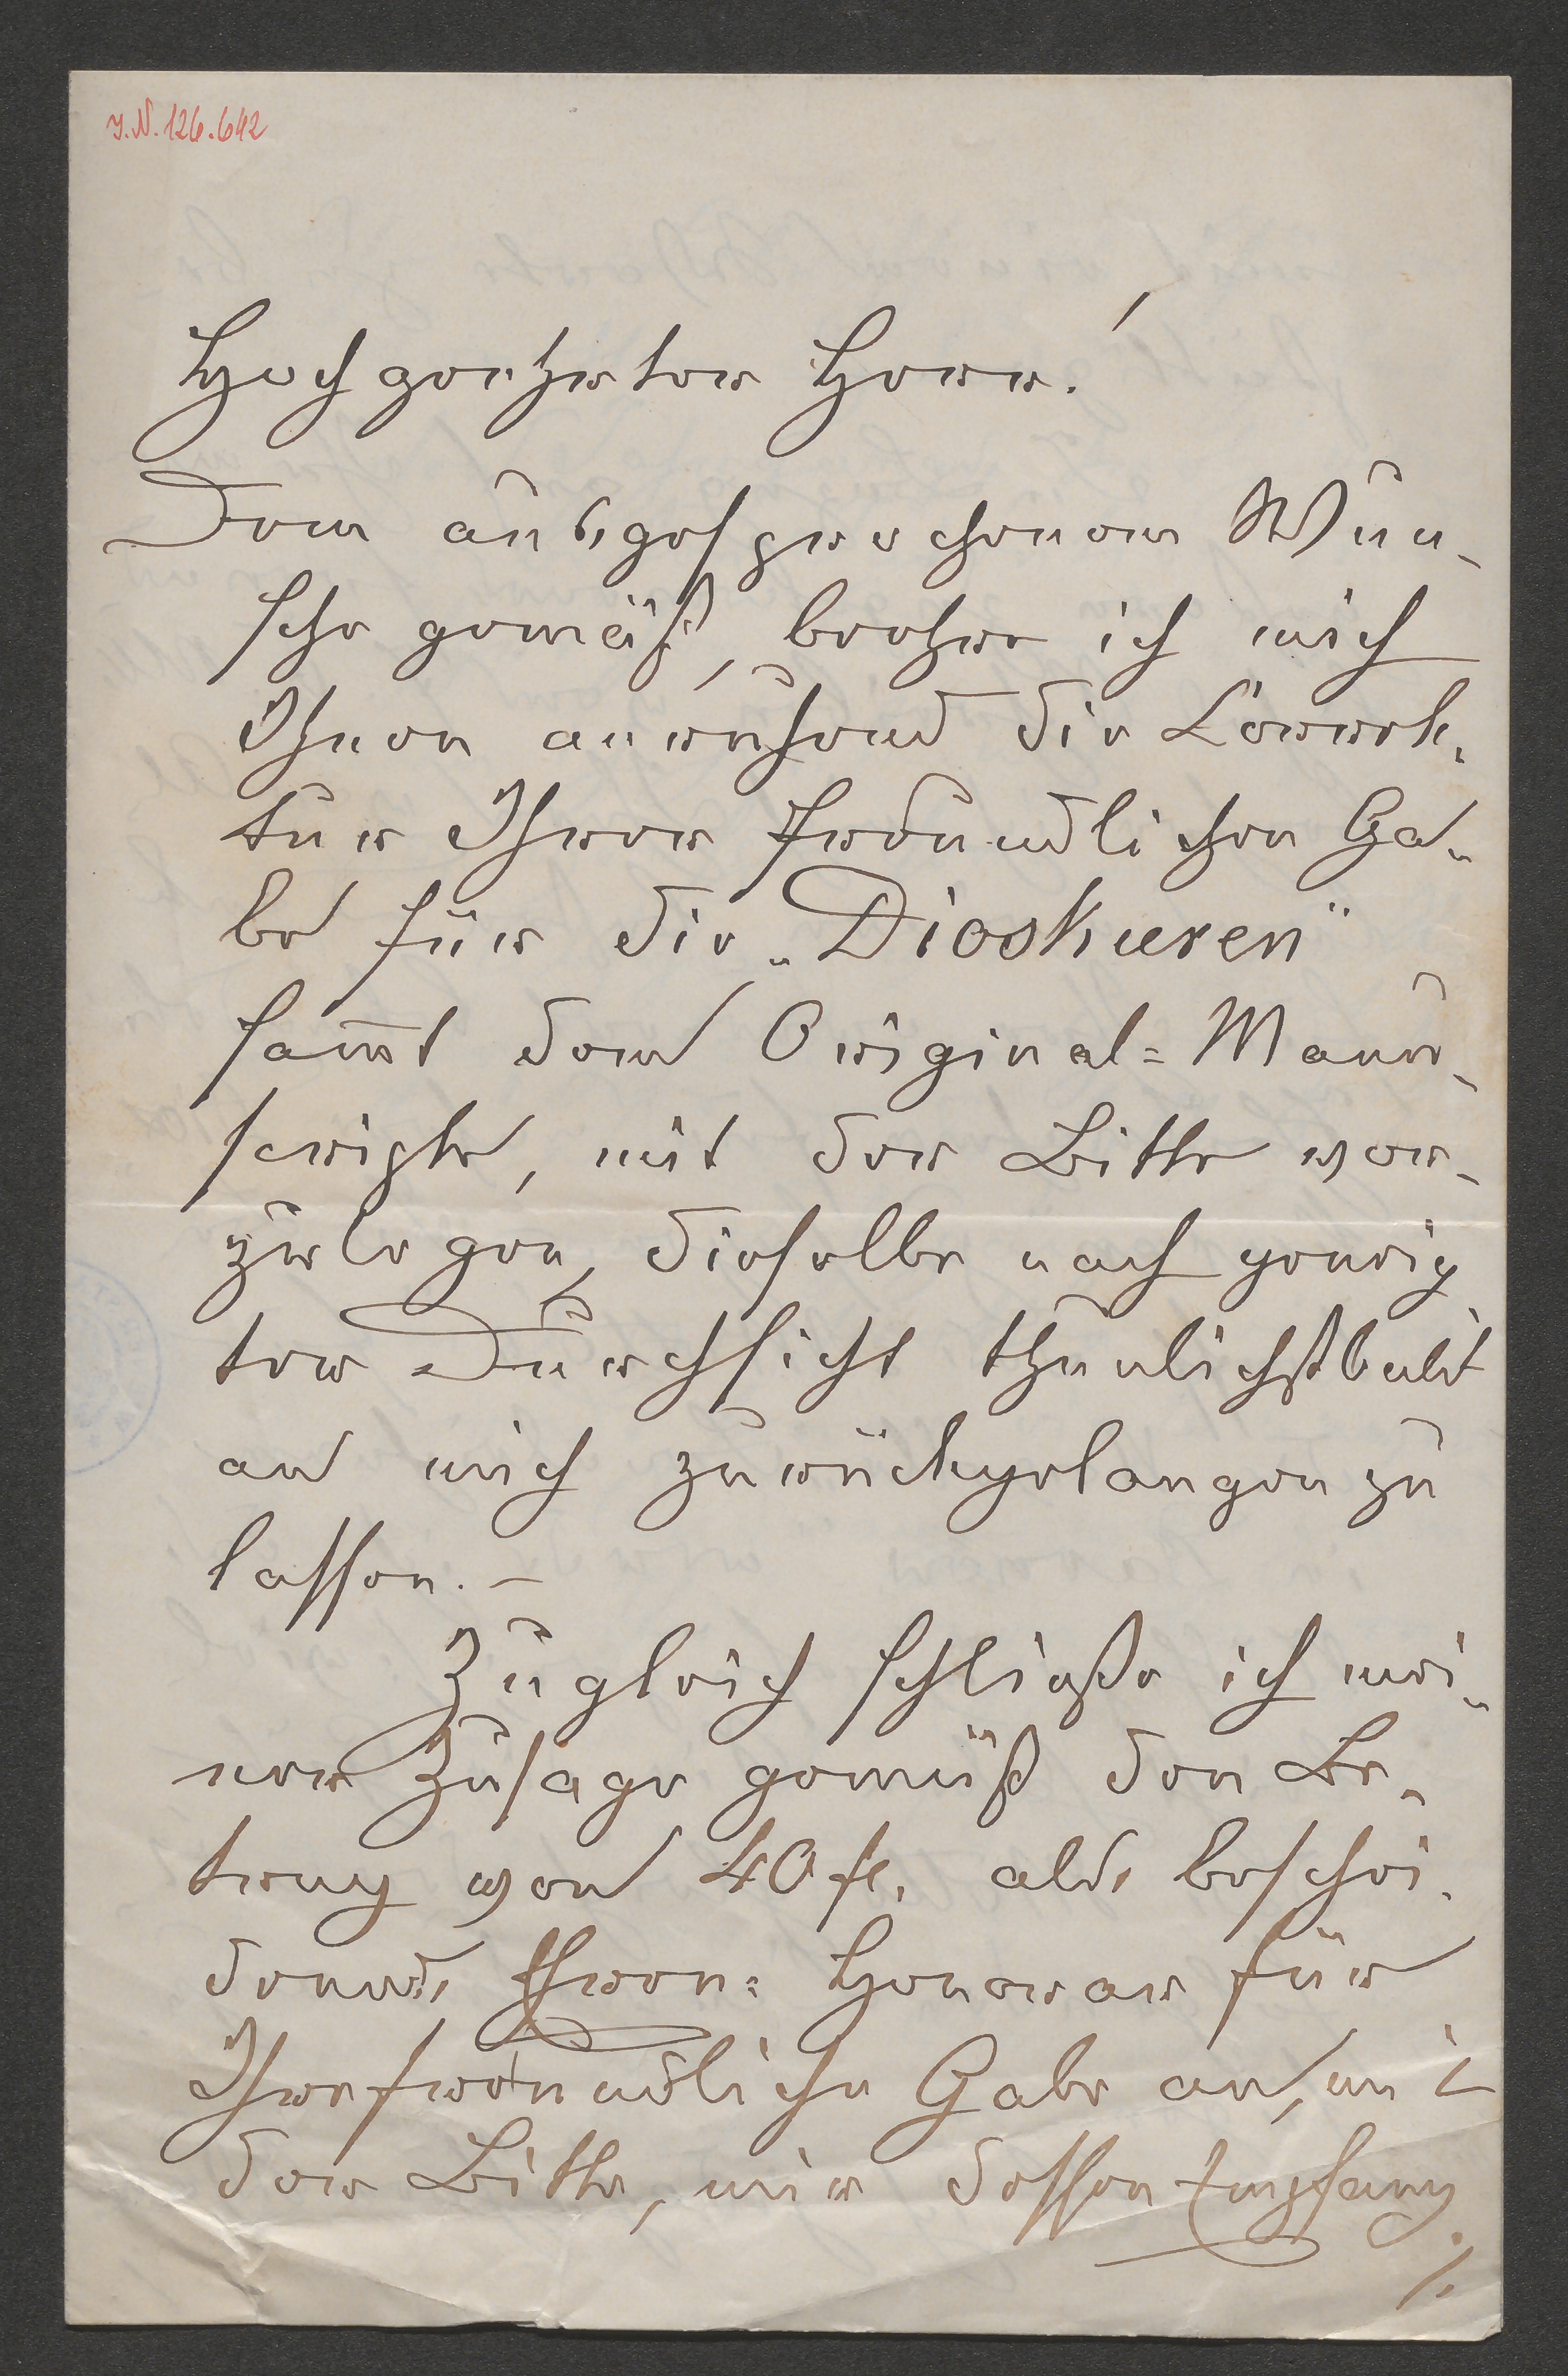 J.N. 126.642
Hochgeehrter Herr!
Dem ausgesprochenen Wun-
sche gemäß, beehre ich mich
Ihnen anruhend die Correk-
tur Ihrer freundlichen Ga-
be für die „Dioskuren"
sam̄t dem Original=Manu-
scripte, mit der Bitte vor-
zulegen, dieselbe nach geneig
ter Durchsicht thunlichst bald
an mich zurückgelangen zu
lassen. –
Zugleich schließe ich mei-
ner Zusage gemäß den Be-
trag von 40 fl. als beschei-
denes Ehren= Honorar für
Ihre freundliche Gabe an, mit
der Bitte, mir dessen Empfang
./.